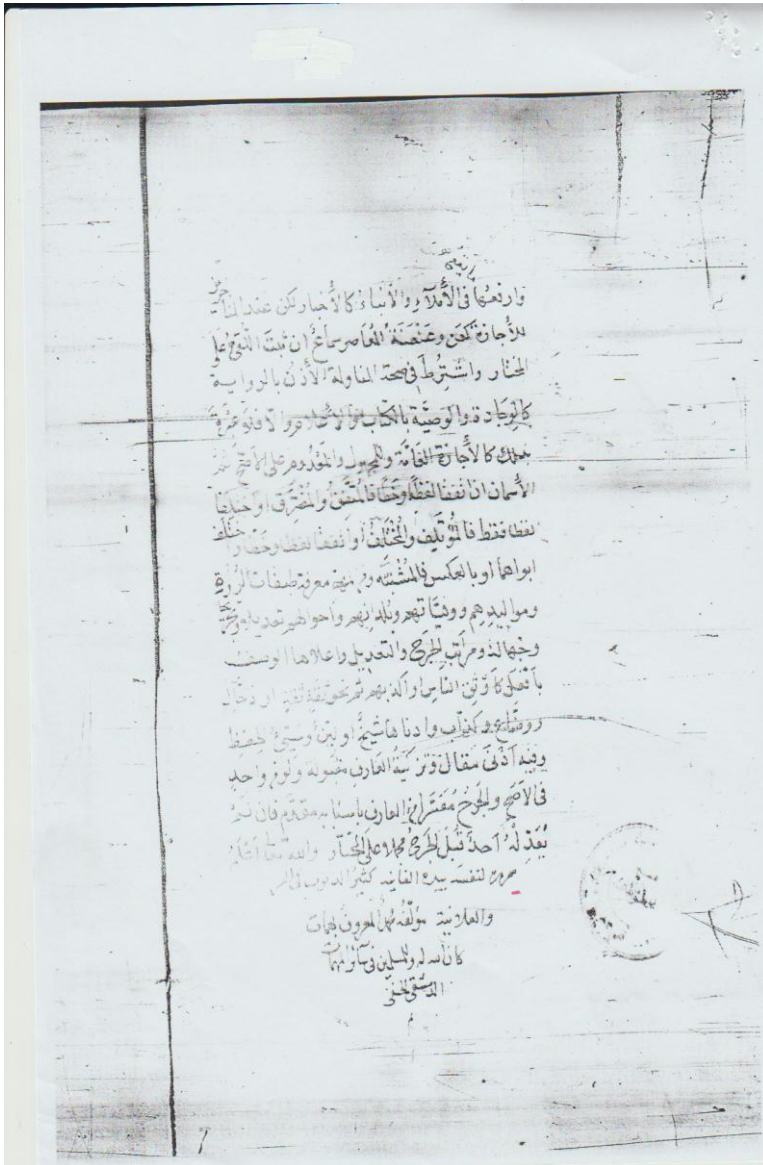 وارفعها في الأملاء والأنباء كالأخبار لكن عند
للأجازة كعن وعنعنة المعاصر سماع ان ثبت اللقي على
المختار واشترط في صحة المناولة الأذن بالرواية
كالوجادة والوصية بالكتاب والاعلام والا فلا عبرة
بذلك كالأجازة العامة وللمجهول والمعدوم على الأصح ثم
الأسمان ان اتفقا لفظا وخطا فالمتفق والمفترق او اختلفا
لفظا فقط فالمؤتلف والمختلف او اتفقا لفظا وخطا واختلف
ابواهما او بالعكس فالمشتبه ومن معرفة طبقات الرواة
ومواليدهم ووفياتهم وبلدانهم واحوالهم تعديلا وتجريحا
وجهالة ومراتب الجرح والتعديل واعلاها الوصف
بأفعل كأوثق الناس او اكذبهم ثم نحو ثقة ثقة او دجال
ووضاع وكذاب وادناها شيخ او لين وسيئ الحفظ
وفيه أدنى مقال وتزكية العارف مقبولة ولو من واحد
في الأصح والجرح مفسرا من العارف بأسبابه مقدم فان لم
يعدله احد قبل الجرح مجملا على المختار والله تعالى أعلم
حرره لنفسه بيده الفانية كثير الذنوب في السر
والعلانية مؤلفه محمد المعروف بهمات
كان الله له وللمسلمين في سائر المهمات
الدمشقي الحنفي